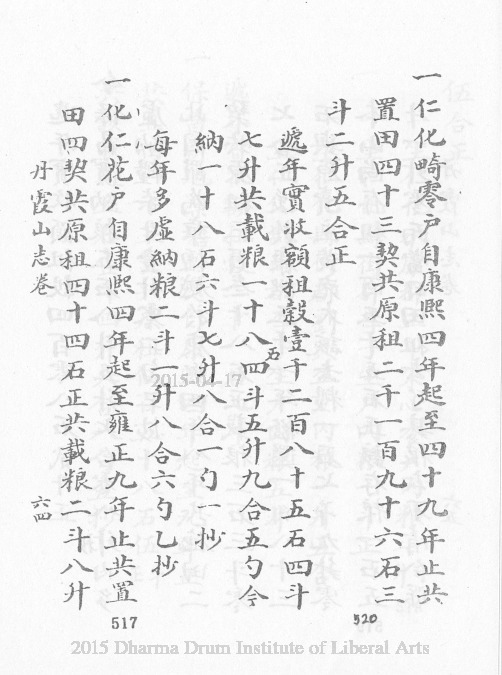 一仁化畸零户自康熙四年起至四十九年止共
置田四十三契共原租二千一百九十六石三
斗二升五合正
遞年實收額租穀壹千二百八十五石四斗
七升共載粮一十八五四斗五升九合五勺今
納一十八石六斗七升八合一勺一抄
每年多虛納粮二斗一升八合六勺乙抄
一化仁花户自康熙四年起至雍正九年止共置
田四契共原租四十四石正共載粮二斗八升
丹霞山志卷
六四
517
520
2015-04-17
2015 Dharma Drum Institute of Liberal Arts